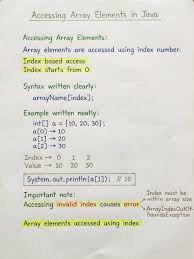 Accessing Array Elements in Java
Accessing Array Elements:
Array elements are accessed using index number.
Index based access
Index starts from 0
Syntax written clearly:
arrayName[index];
Example written neatly:
int[] a = {10, 20, 30};
a[0] → 10
a[1] → 20
a[2] → 30
Index → 0 1 2
Value → 10 20 30
System.out.println(a[1]); // 20
Important note:
Accessing invalid index causes error.
Index must be
within array size
→ ArrayIndexOutOf-
BoundsException
Array elements accessed using index.